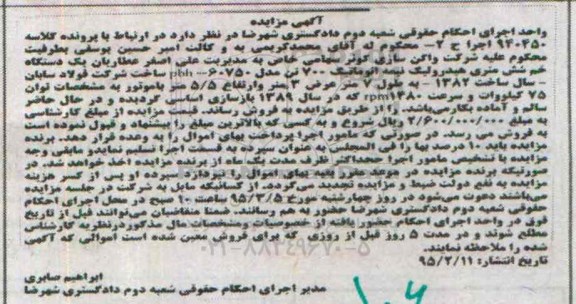 آگهی مزایده
واحد اجرای احکام حقوقی شعبه دوم دادگستری شهرضا در نظر دارد در ارتباط با پرونده کلاسه
۹۴۰۴۵۰ اجرا ح ۲- محکوم له آقای محمدکریمی به و کالت امیر حسین یوسفی بطرفیت
محکوم علیه شرکت واکن سازی کوثر سهامی خاص به مدیریت علی اصغر عطاریان یک دستگاه
خم پیش متری هیدرولیک نیمه اتوماتیک ۷۰۰ تن مدل pbh ۶۰۷۵۰ ساخت شرکت فولاد سایان
- سال ساخت ۱۳۸۲ - به طول ۷ متر عرض ۳ متر وارتفاع ۵/۵ متر باموتور به مشخصات توان
۷۵ کیلووات و سرعت rpm۱۴۸۰ که در سال ۱۳۸۹ بازسازی اساسی گردیده و در حال حاضر
سالم و آماده بکارمی‌باشد. را از طریق مزایده به فروش رساند. قیمت مزایده از مبلغ کارشناسی
۲/۶۰۰/۰۰۰/۰۰۰ ریال شروع و به کسی که بالاترین مبلغ را پیشنهاد و قبول نموده است
به فروش می رسد. در صورتی که مامور اجرا پرداخت بهای اموال را به وعده قرار دهد. برنده
مزایده باید ۱۰ درصد بها را فی المجلس به عنوان سپرده به قسمت اجرا تسلیم نماید. مابقی وجه
مزایده با تشخیص مامور اجرا حداکثر ظرف مدت یک ماه از برنده مزایده اخذ خواهد شد. در
صورتیکه برنده مزایده در موعد مقرر بقیه بهای اموال را نپردازد سپرده او پس از کسر هزینه
مزایده به نفع دولت ضبط و مزایده تجدید می‌گردد. از کسانیکه مایل به شرکت در جلسه مزایده
می‌باشند دعوت می‌شود در روز چهارشنبه مورخ ۹۵/۳/۵ ساعت ۱۰ صبح در محل اجرای احکام
حقوقی شعبه دوم دادگستری شهرضا حضور به هم رسانند. ضمنا متقاضیان می‌توانند قبل از تاریخ
فوق در واحد اجرای احکام حضور یافته از خصوصیات ومشخصات مال مذکوردرنظریه کارشناس
مطلع شوند و در مدت ۵ روز قبل از روزی که برای فروش معین شده است اموالی که آگهی
شده را ملاحظه نمایند.
تاریخ انتشار: ۹۵/۲/۱۱
ابراهیم صابری
مدیر اجرای احکام حقوقی شعبه دوم دادگستری شهرضا